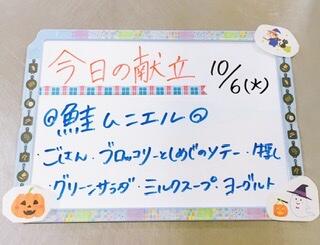 今日の献立
10/6(火)
◎鮭ムニエル◎
・ごはん・ブロッコリーとしめじのソテー・
・グリーンサラダ・ミルクスープ・ヨーグルト